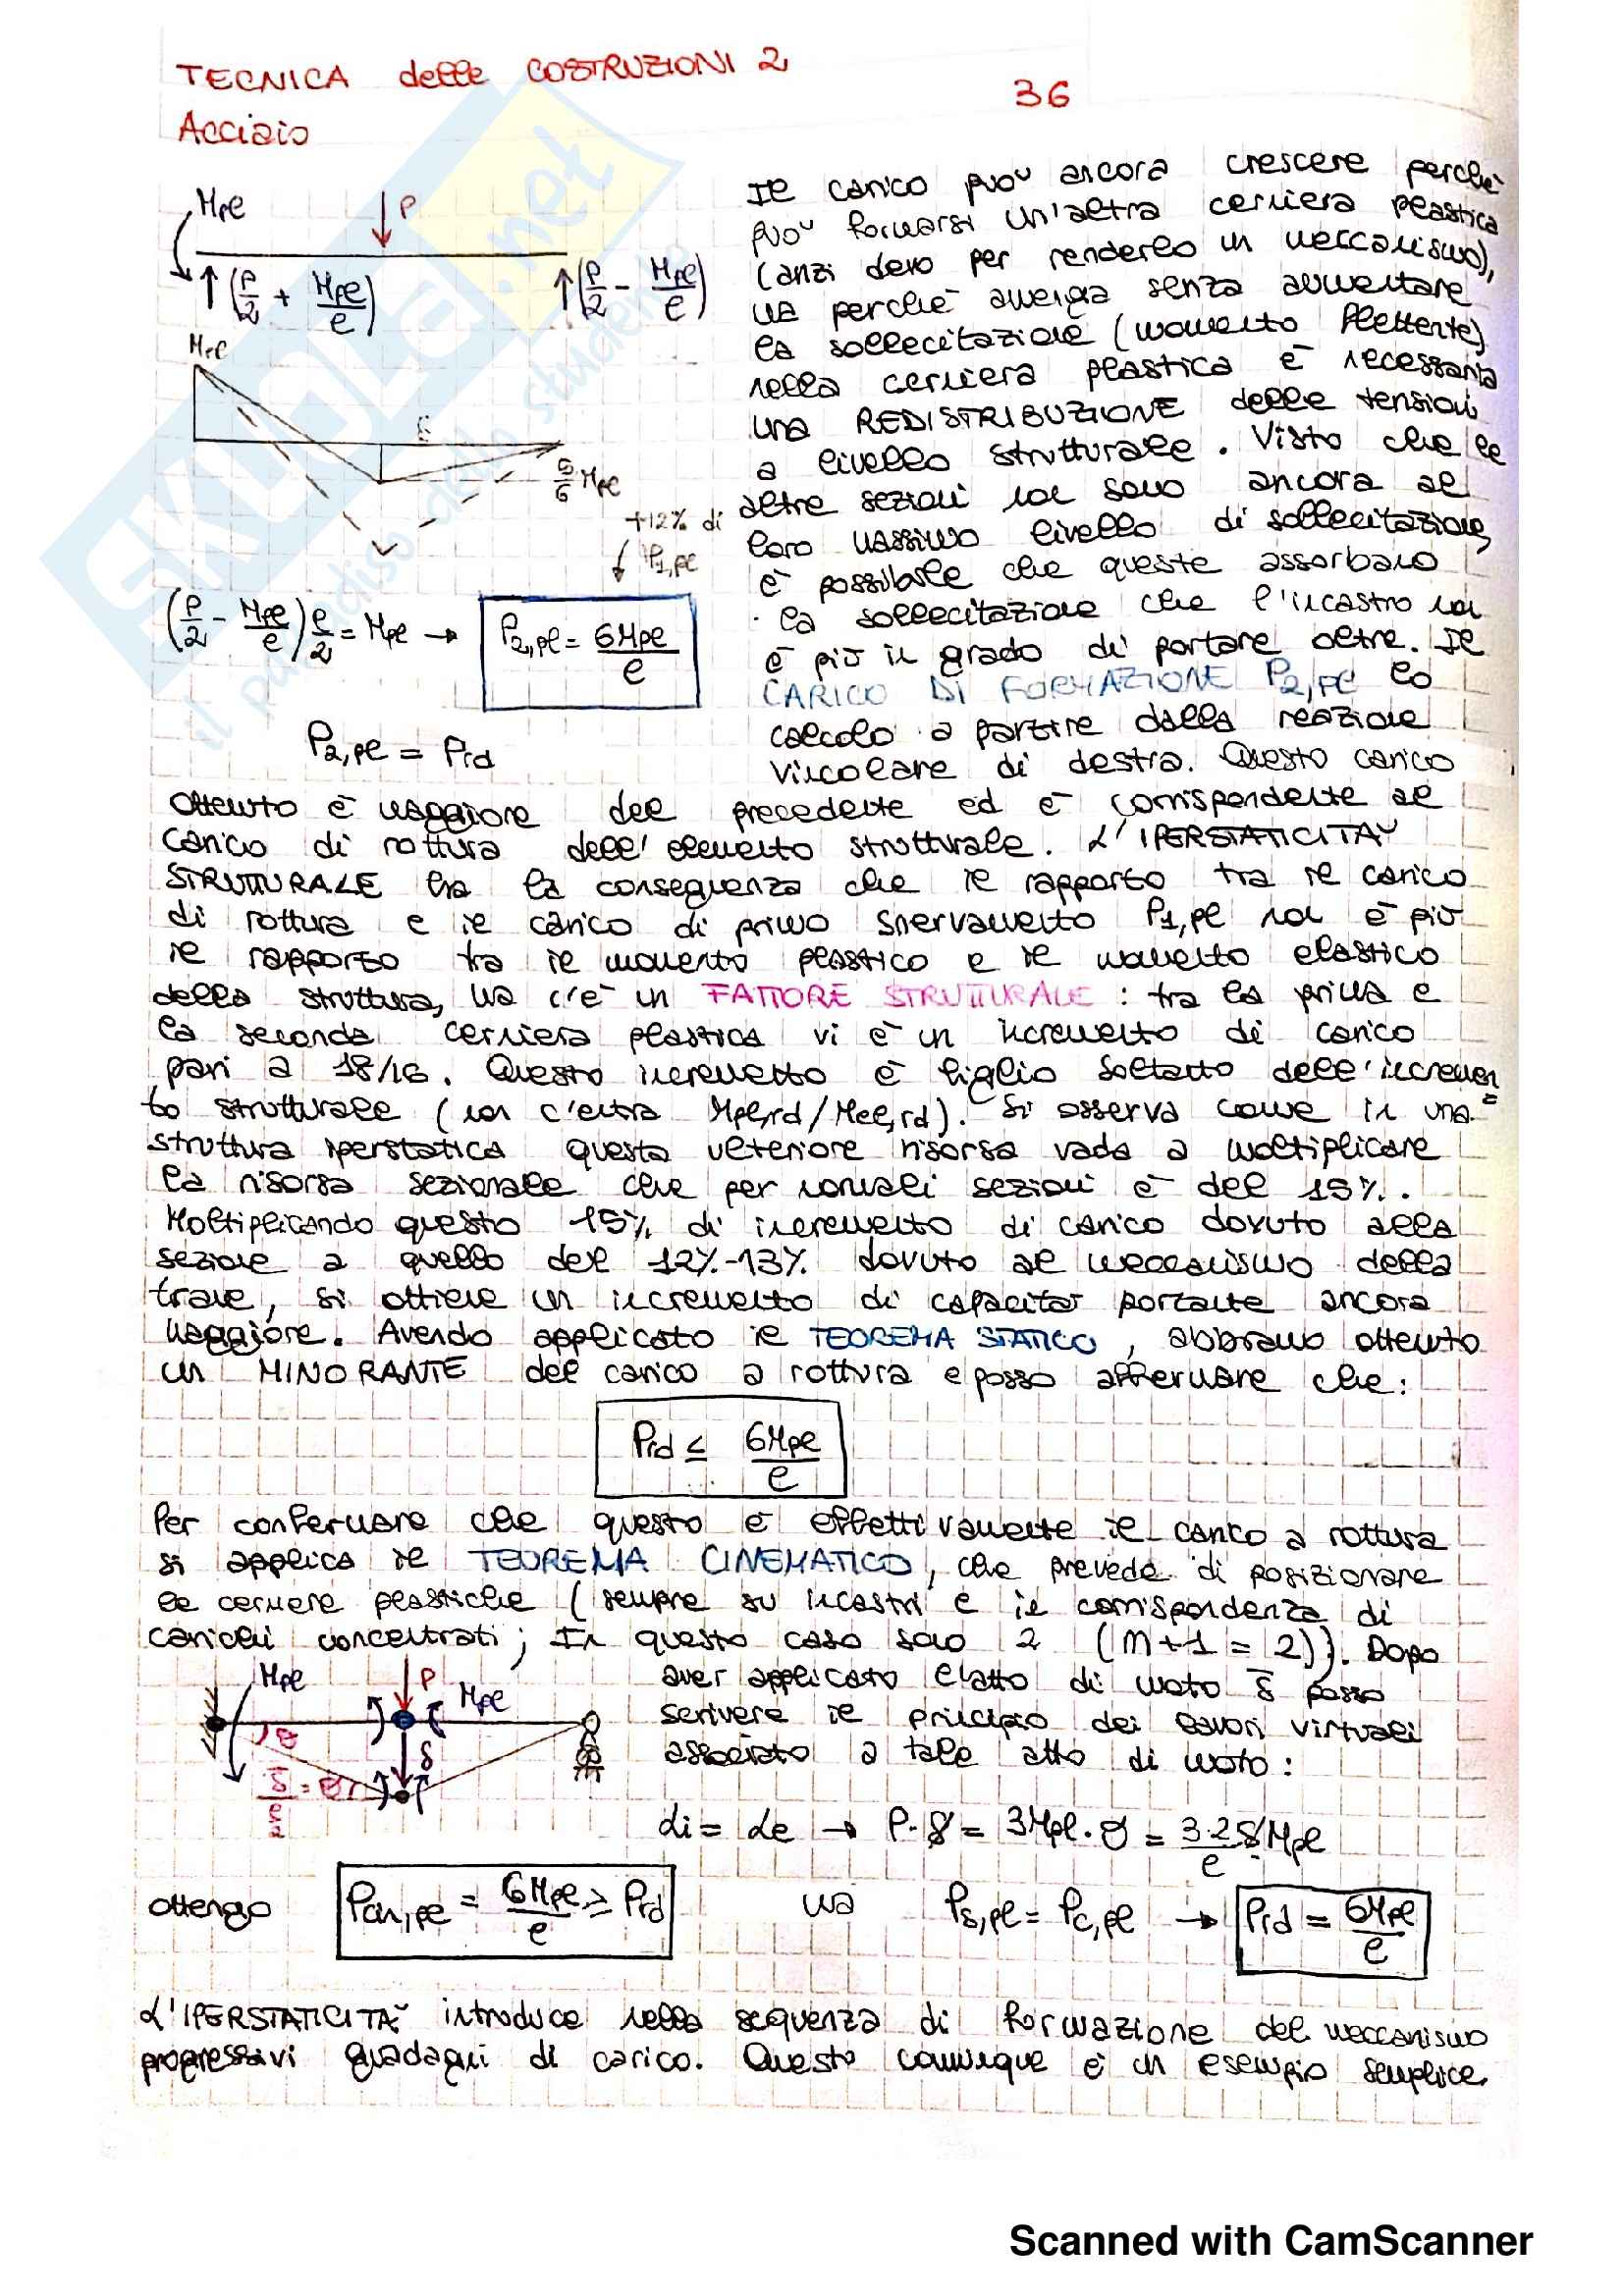 TECNICA delle COSTRUZIONI 2
36
Acciaio
Mpl
P
(P/2 + Mpl/l)
(P/2 - Mpl/l)
Mpl
5/6 Mpl
+12% di P1,pl
(P/2 - Mpl/l) l/2 = Mpl → P2,pl = 6Mpl/l
P2,pl = Prd
Il carico può ancora crescere perché
può formarsi un'altra cerniera plastica
(anzi devo per renderlo un meccanismo),
ma perché avvenga senza aumentare
la sollecitazione (momento flettente)
nella cerniera plastica è necessaria
una REDISTRIBUZIONE delle tensioni
a livello strutturale. Visto che le
altre sezioni non sono ancora al
loro massimo livello di sollecitazione,
è possibile che queste assorbano
la sollecitazione che l'incastro non
è più in grado di portare oltre. Il
CARICO DI FORMAZIONE P2,pl lo
calcolo a partire dalla reazione
vincolare di destra. Questo carico
ottenuto è maggiore del precedente ed è corrispondente al
carico di rottura dell'elemento strutturale. L'IPERSTATICITÀ
STRUTTURALE ha la conseguenza che il rapporto tra il carico
di rottura e il carico di primo snervamento P1,pl non è più
il rapporto tra il momento plastico e il momento elastico
della struttura, ma c'è un FATTORE STRUTTURALE: tra la prima e
la seconda cerniera plastica vi è un incremento di carico
pari a 18/16. Questo incremento è figlio soltanto dell'incremen=
to strutturale (non c'entra Mpl,rd/Mel,rd). Si osserva come in una
struttura iperstatica questa ulteriore risorsa vada a moltiplicare
la risorsa sezionale che per normali sezioni è del 15%.
Moltiplicando questo 15% di incremento di carico dovuto alla
sezione a quello del 12%-13% dovuto al meccanismo della
trave, si ottiene un incremento di capacità portante ancora
maggiore. Avendo applicato il TEOREMA STATICO, abbiamo ottenuto
un MINORANTE del carico a rottura e posso affermare che:
Prd ≤ 6Mpl/l
Per confermare che questo è effettivamente il carico a rottura
si applica il TEOREMA CINEMATICO, che prevede di posizionare
le cerniere plastiche (sempre su incastri e in corrispondenza di
carichi concentrati; In questo caso sono 2 (m+1=2)). Dopo
aver applicato l'atto di moto δ posso
scrivere il principio dei lavori virtuali
associato a tale atto di moto:
Mpl
P
Mpl
θ
δ
δ/(l/2) = θ
Li = Le → P·δ = 3Mpl·θ = 3·2δ/l Mpl
ottengo Pcin,pl = 6Mpl/l ≥ Prd ma Ps,pl = Pc,pl → Prd = 6Mpl/l
L'IPERSTATICITÀ introduce nella sequenza di formazione del meccanismo
progressivi guadagni di carico. Questo comunque è un esempio semplice.
Scanned with CamScanner
SKUOLA.net
il paradiso dello studente